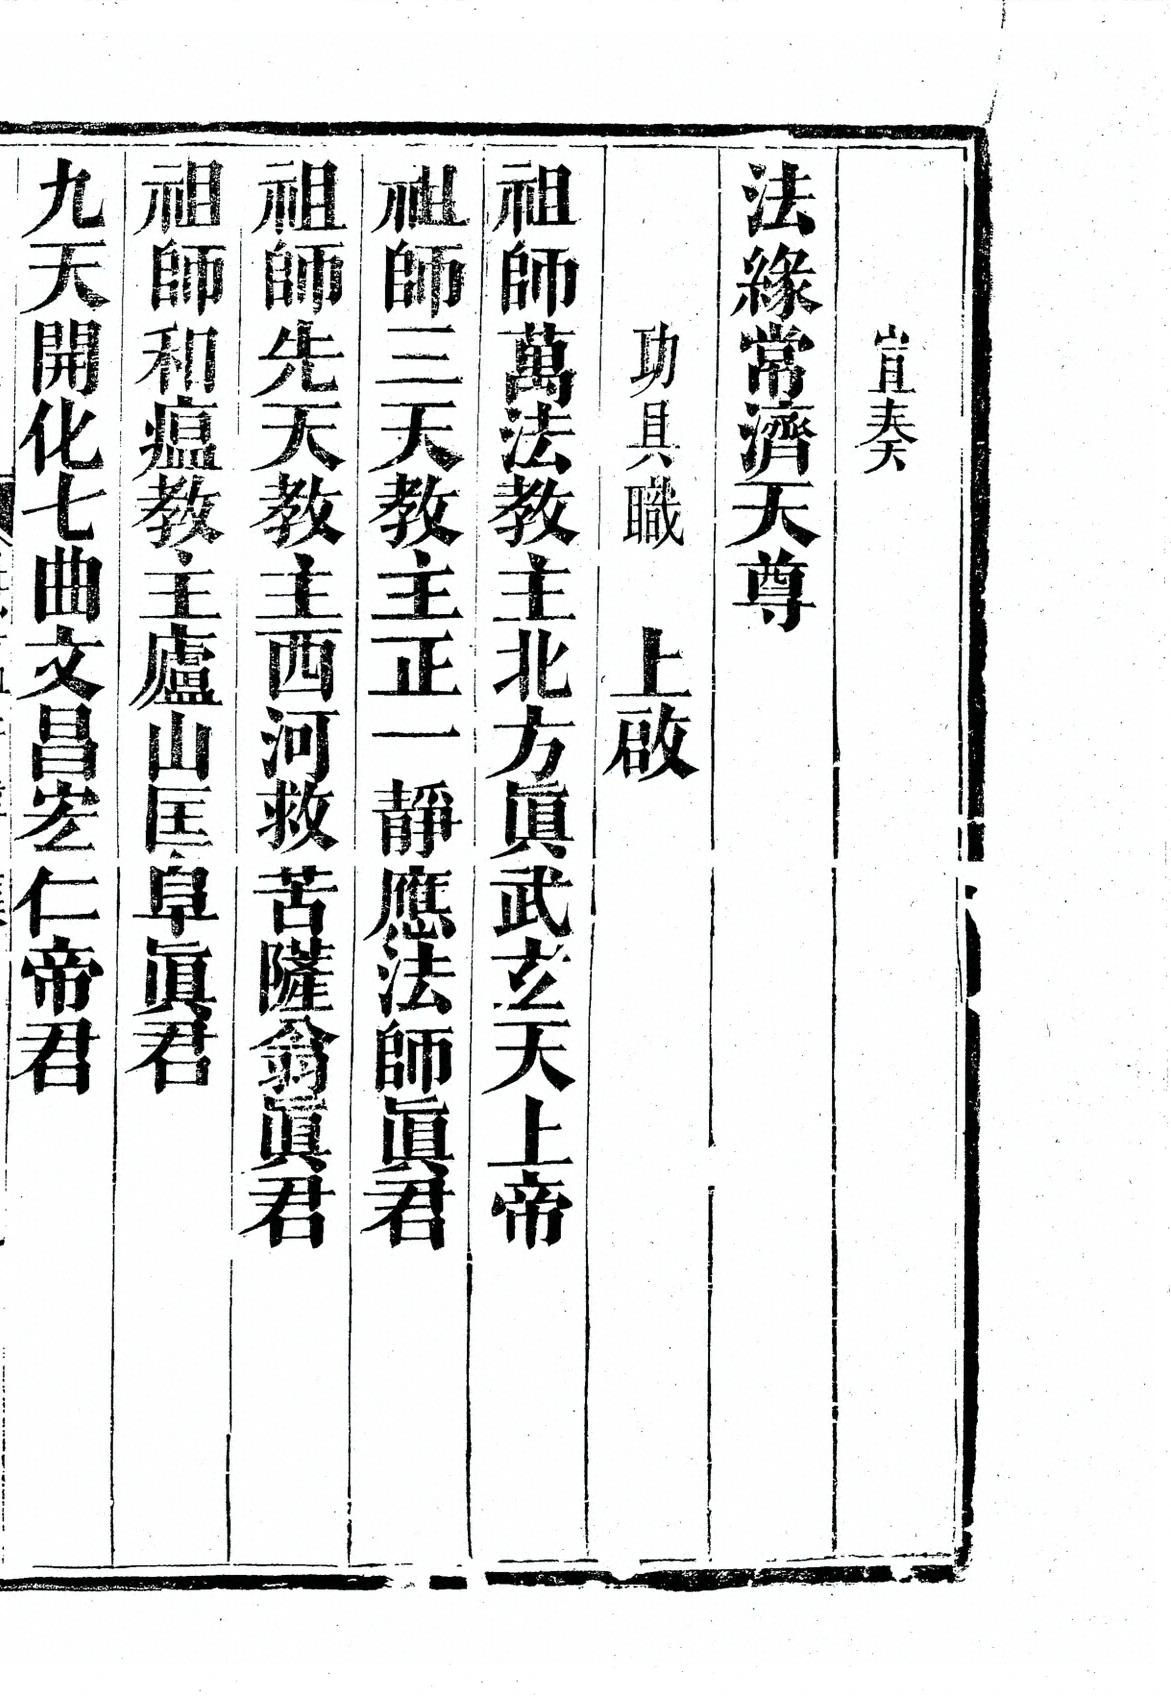 宣奏
法緣常濟天尊
功具職　上啟
祖師萬法教主北方眞武玄天上帝
祖師三天教主正一靜應法師眞君
祖師先天教主西河救苦薩翁眞君
祖師和瘟教主廬山匡阜眞君
九天開化七曲文昌宏仁帝君